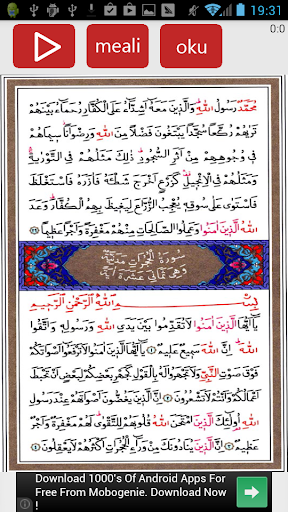 19:31
meali
oku
0:0
مُحَمَّدٌ رَسُولُ اللّٰهِ وَالَّذِينَ مَعَهُ أَشِدَّاءُ عَلَى الْكُفَّارِ رُحَمَاءُ بَيْنَهُمْ
تَرٰيهُمْ رُكَّعًا سُجَّدًا يَبْتَغُونَ فَضْلًا مِنَ اللّٰهِ وَرِضْوَانًا سِيمَاهُمْ
فِي وُجُوهِهِمْ مِنْ أَثَرِ السُّجُودِ ذٰلِكَ مَثَلُهُمْ فِي التَّوْرٰيةِ
وَمَثَلُهُمْ فِي الْإِنْجِيلِ كَزَرْعٍ أَخْرَجَ شَطْئَهُ فَآزَرَهُ فَاسْتَغْلَظَ
فَاسْتَوٰى عَلٰى سُوقِهِ يُعْجِبُ الزُّرَّاعَ لِيَغِيظَ بِهِمُ الْكُفَّارَ وَعَدَ
اللّٰهُ الَّذِينَ آمَنُوا وَعَمِلُوا الصَّالِحَاتِ مِنْهُمْ مَغْفِرَةً وَأَجْرًا عَظِيمًا ٢٩
سُورَةُ الْحُجُرَاتِ مَدَنِيَّةٌ
وَهِيَ ثَمَانِيَ عَشْرَةَ آيَةً
بِسْمِ اللّٰهِ الرَّحْمٰنِ الرَّحِيمِ
يَا أَيُّهَا الَّذِينَ آمَنُوا لَا تُقَدِّمُوا بَيْنَ يَدَيِ اللّٰهِ وَرَسُولِهِ وَاتَّقُوا
اللّٰهَ إِنَّ اللّٰهَ سَمِيعٌ عَلِيمٌ ١ يَا أَيُّهَا الَّذِينَ آمَنُوا لَا تَرْفَعُوا أَصْوَاتَكُمْ
فَوْقَ صَوْتِ النَّبِيِّ وَلَا تَجْهَرُوا لَهُ بِالْقَوْلِ كَجَهْرِ بَعْضِكُمْ لِبَعْضٍ أَنْ تَحْبَطَ
أَعْمَالُكُمْ وَأَنْتُمْ لَا تَشْعُرُونَ ٢ إِنَّ الَّذِينَ يَغُضُّونَ أَصْوَاتَهُمْ عِنْدَ رَسُولِ
اللّٰهِ أُولٰئِكَ الَّذِينَ امْتَحَنَ اللّٰهُ قُلُوبَهُمْ لِلتَّقْوٰى لَهُمْ مَغْفِرَةٌ وَأَجْرٌ
عَظِيمٌ ٣ إِنَّ الَّذِينَ يُنَادُونَكَ مِنْ وَرَاءِ الْحُجُرَاتِ أَكْثَرُهُمْ لَا يَعْقِلُونَ ٤
Download 1000's Of Android Apps For
Free From Mobogenie. Download Now
!